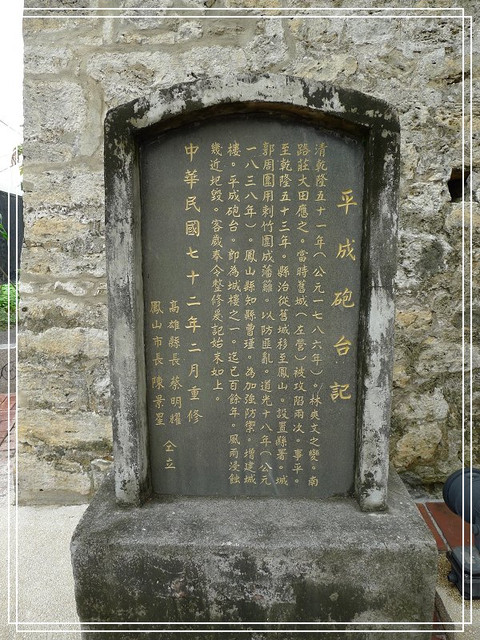 平成砲台記
清乾隆五十一年（公元一七八六年）。林爽文之變。南
路莊大田應之。當時舊城（左營）被攻陷兩次。事平。
至乾隆五十三年。縣治從舊城移至鳳山。設置縣署。城
郭周圍用刺竹圍成藩籬。以防匪亂。道光十八年（公元
一八三八年）。鳳山縣知縣曹瑾。為加強防禦。增建城
樓。平成砲台。即為城樓之一。迄已百餘年。風雨浸蝕
幾近圮毀。客歲奉令整修爰記始末如上。
中華民國七十二年二月重修
高雄縣長 蔡明耀
鳳山市長 陳景星
仝立